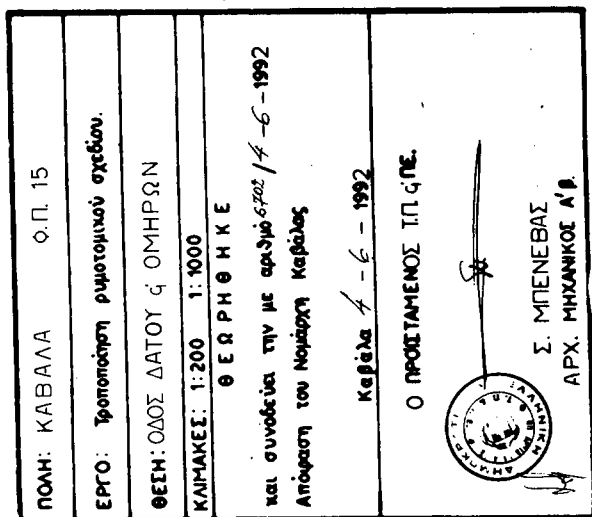 ΠΟΛΗ: ΚΑΒΑΛΑ Φ.Π. 15
ΕΡΓΟ: Τροποποίηση ρυμοτομικού σχεδίου.
ΘΕΣΗ: ΟΔΟΣ ΔΑΤΟΥ ς ΟΜΗΡΩΝ
ΚΛΙΜΑΚΕΣ: 1:200 1:1000
ΘΕΩΡΗΘΗΚΕ
και συνοδεύει την με αριθμό 6702/4-6-1992
Απόφαση του Νομάρχη Καβάλας
Καβάλα 4-6-1992
Ο ΠΡΟΪΣΤΑΜΕΝΟΣ Τ.Π. ς ΠΕ.
Σ. ΜΠΕΝΕΒΑΣ
ΑΡΧ. ΜΗΧΑΝΙΚΟΣ Α'β.